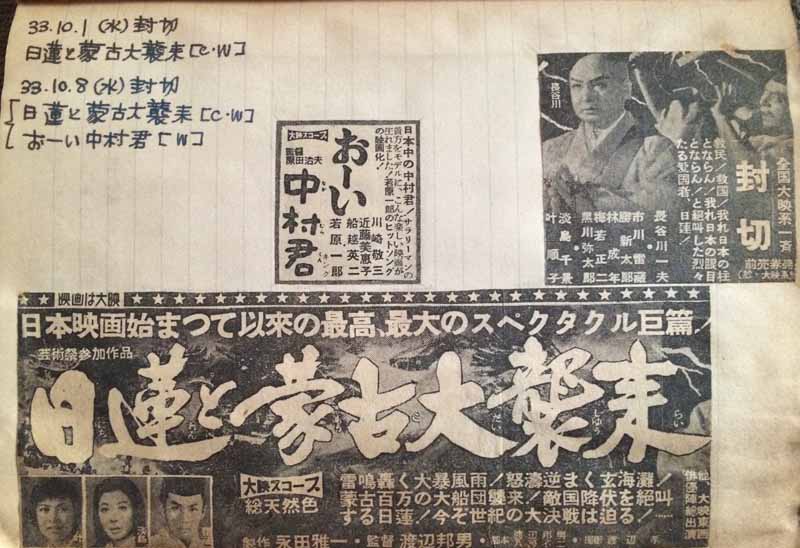 33.10.1(水)封切
日蓮と蒙古大襲来[C・W]
33.10.8(水)封切
日蓮と蒙古大襲来[C・W]
おーい中村君[W]
日本中の中村君!サラリーマンの
貴方をモデルに、こんな楽しい映画が
生れました!若原一郎のヒットソング
の映画化!
大映スコープ
おーい
中村君
監督
原田治夫
川崎敬三
近藤美恵子
船越英二
若原一郎
キング
長谷川
全国大映系一斉
封切
前売券発
救民!救国!我れ日本の柱
とならん!我れ日本の眼目
とならん!と絶叫した烈々
たる愛国者、日蓮!
長谷川一夫
市川雷蔵
勝新太郎
林成年
梅若正二
黒川弥太郎
淡島千景
叶順子
映画は大映
日本映画始まつて以來の最高、最大のスペクタクル巨篇!
芸術祭参加作品
日蓮と蒙古大襲来
大映スコープ
総天然色
雷鳴轟く大暴風雨!怒濤逆まく玄海灘!
蒙古百万の大船団襲来!敵国降伏を絶叫
する日蓮!今ぞ世紀の大決戦は迫る!
大映東西
俳優陣総出演
製作 永田雅一・監督 渡辺邦男・